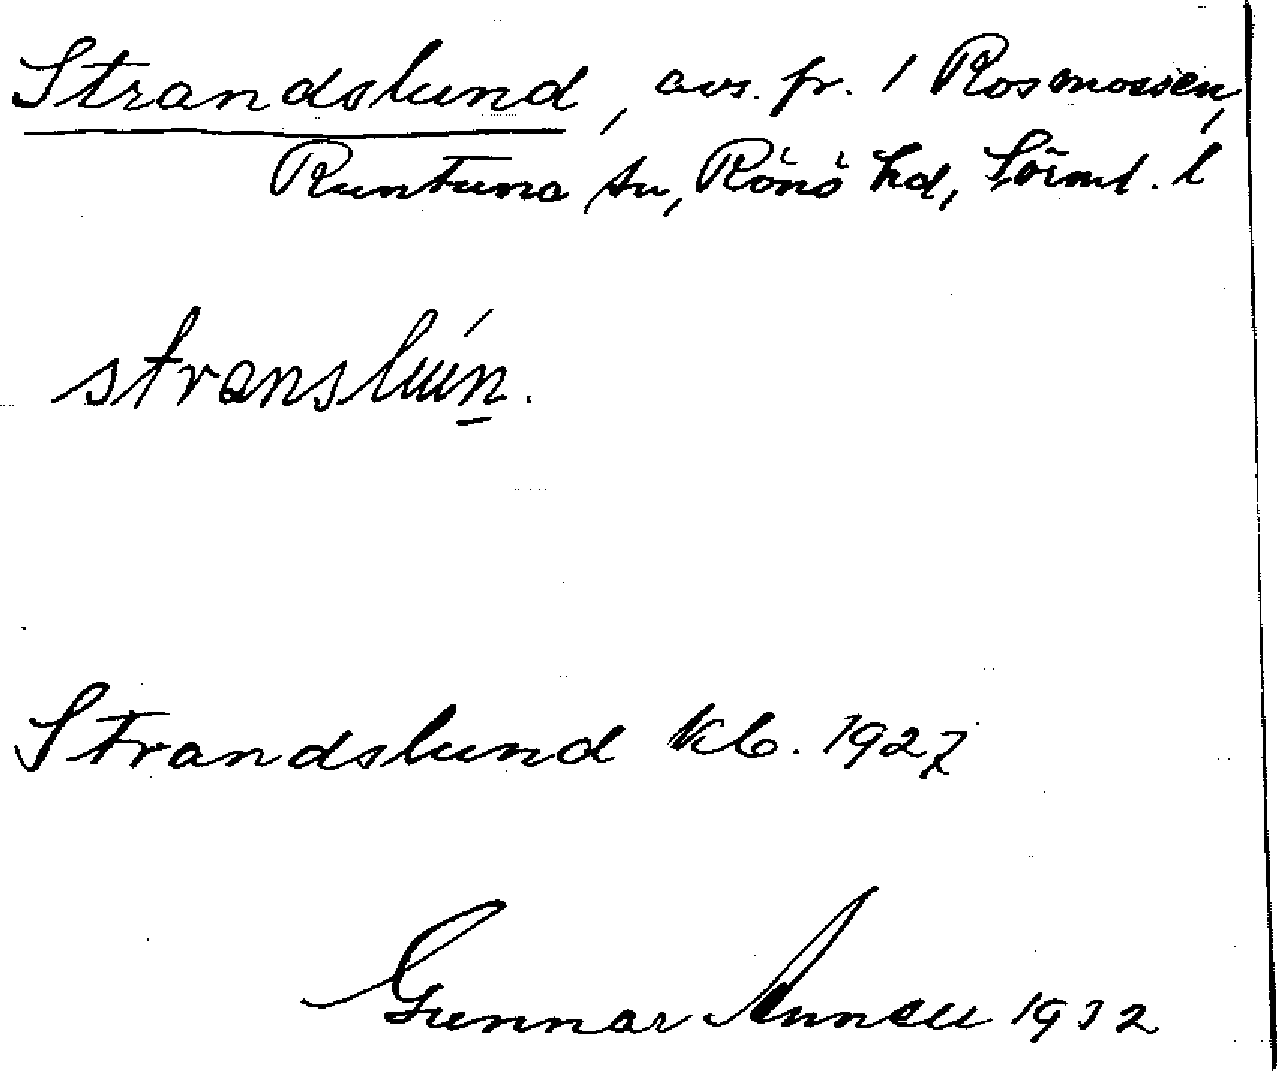 Strandslund, avs. fr. / Rosmossen,
Runtuna sn, Rönö hd, Sörml. l
Strandslund kb. 1927
Gunnar 1932